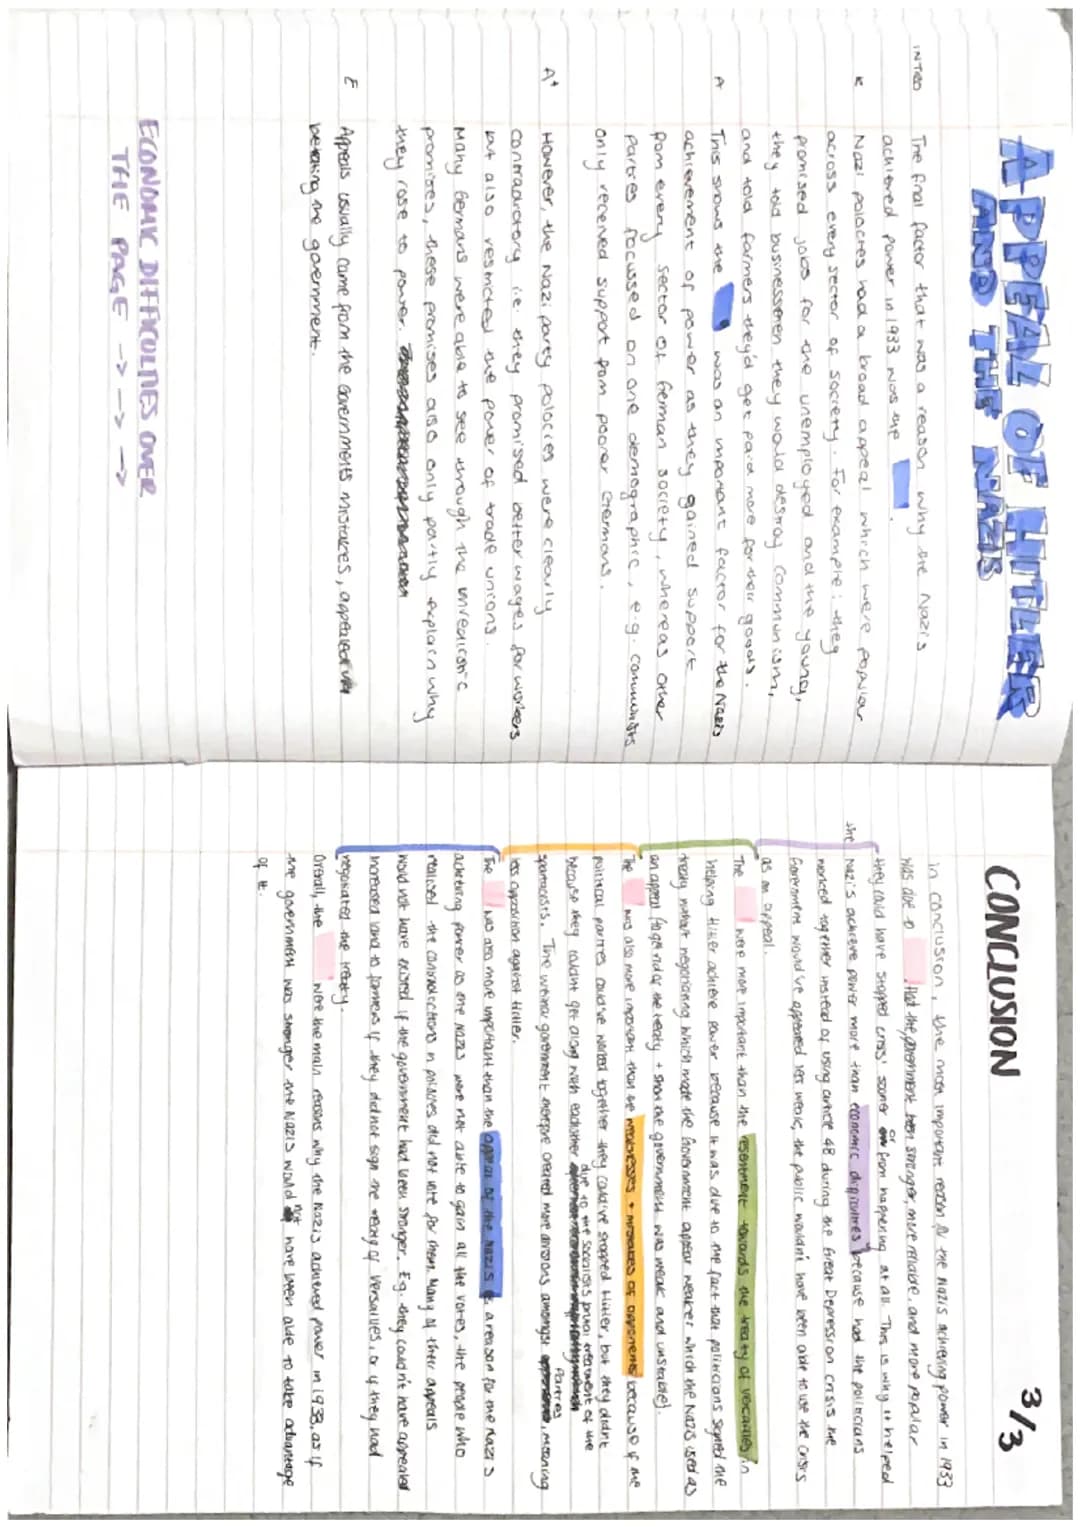 APPEAL OF HITLER
AND THE NAZIS
INTRO The final factor that was a reason why the Nazis
achieved power in 1933 was the
K Nazi polocies had a broad appeal which were popular
across every sector of society. For example: they
promised jobs for the unemployed and the young,
they told businessmen they would destroy Communism,
and told farmers they'd get paid more for their goods.
A This shows the was an important factor for the Nazis
achievement of power as they gained support
from every sector of German society, whereas other
parties focussed on one demographic, e.g. communists
only received support from poorer Germans.
A+ However, the Nazi party polocies were clearly
contradictory i.e. they promised better wages for workers
but also restricted the power of trade unions.
Many Germans were able to see through the unrealistic
promises, these promises also only partly explain why
they rose to power.
E Appeals usually came from the Governments mistakes,
the government.
ECONOMIC DIFFICULTIES OVER
THE PAGE -> -> ->
CONCLUSION 3/3
In conclusion, the most important reason for the Nazis achieving power in 1933
was due to Had the government been stronger, more reliable and more popular
they could have stopped crisis' sooner or from happening at all. This is why it helped
the Nazi's achieve power more than economic difficulties because had the politicians
worked together instead of using article 48 during the Great Depression crisis the
Government would've appeared less weak, the public wouldn't have been able to use the crisis
as an appeal.
The were more important than the resentment towards the treaty of versailles in
helping Hitler achieve power because it was due to the fact that politicians signed the
treaty without negotiating which made the Government appear weaker which the Nazis used as
an appeal (to get rid of the treaty + show the government was weak and unstable).
The was also more important than the weaknesses + mistakes of opponents because if the
political parties could've worked together they could've stopped Hitler, but they didn't
because they couldn't get along with eachother due to the Socialists brutal treatment of the
spartacists. The weimar government therefore created more divisions amongst parties, meaning
less opposition against Hitler.
The was also more important than the appeal of the nazis as a reason for the Nazi's
achieving power as the Nazis were not able to gain all the votes, the people who
realised the contradictions in policies did not vote for them. Many of their appeals
would not have existed if the government had been stronger. E.g. they couldn't have appealed
increased land to farmers if they did not sign the treaty of Versailles, or if they had
negotiated the treaty.
Overall, the were the main reasons why the Nazis achieved power in 1933, as if
the government was stronger the Nazis would not have been able to take advantage
of it.